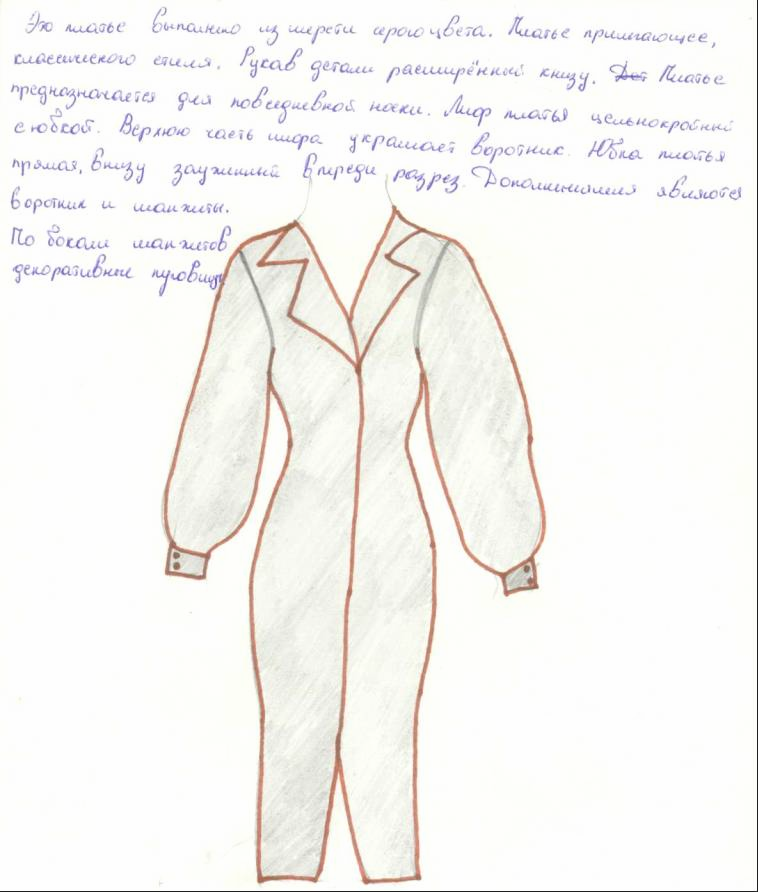 Это платье выполнено из шерсти серого цвета. Платье прилегающее,
классического стиля. Рукав детали расширённый книзу. Дет Платье
предназначается для повседневной носки. Лиф платья цельнокройный
с юбкой. Верхнюю часть лифа украшает воротник. Юбка платья
прямая, внизу зауженный впереди разрез. Дополнениями являются
воротник и манжеты.
По бокам манжетов
декоративные пуговицы